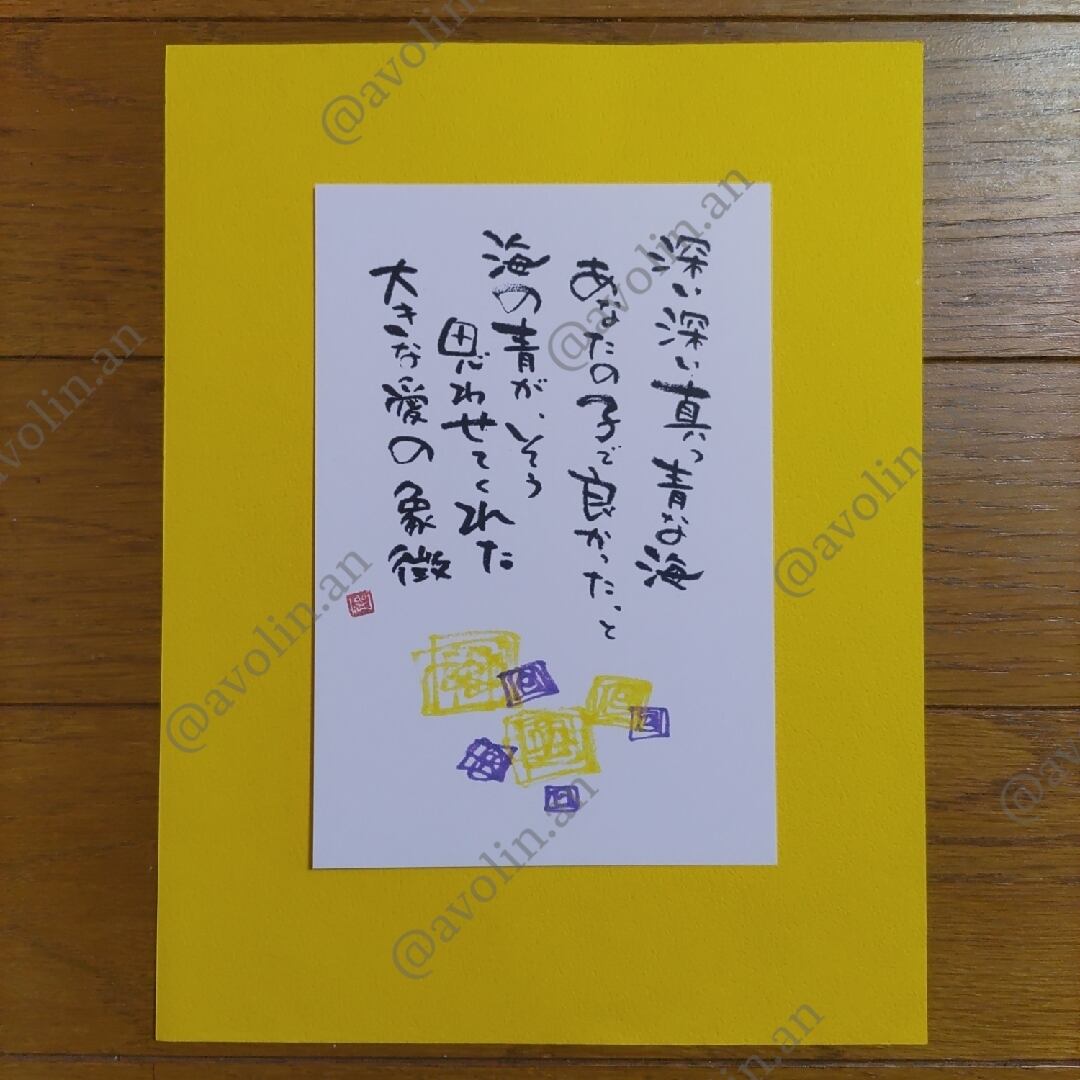 深い深い真っ青な海
あなたの子で良かったっと
海の青が、そう
思わせてくれた
大きな愛の象徴
@avolin.an
@avolin.an
@avolin.an
@avolin.an
@avolin.an
@avolin.an